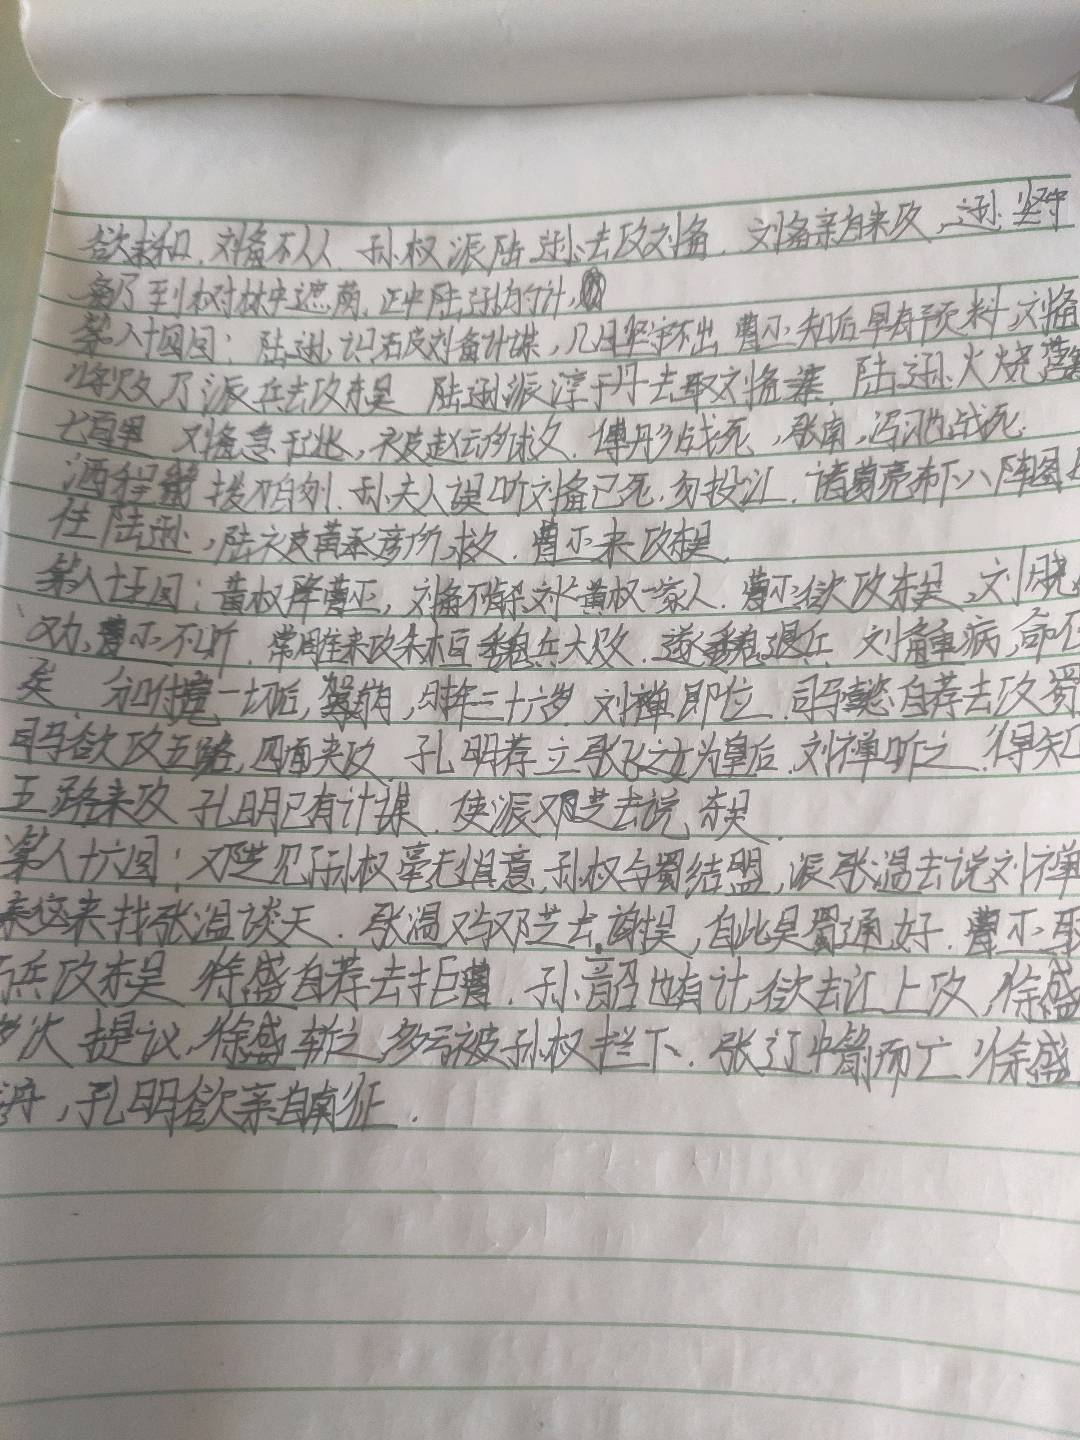 欲求和,刘备不从.孙权派陆逊去攻刘备.刘备亲自来攻,逊坚守
备乃到树林中遮荫,正中陆逊的计,
第八十四回:陆逊识破刘备计谋,几日坚守不出,曹丕知后早有预料,刘备
将败乃派兵去攻东吴 陆逊派淳于丹去取刘备寨,陆逊火烧营寨
七百里 刘备急于此,求被赵云所救.傅彤战死,张南,冯习战死.
程畿拔刀自刎.孙夫人误听刘备已死,为投江.诸葛亮布下八阵图
住陆逊,陆又被黄承彦所救.曹丕来攻东吴.
第八十五回:黄权降曹丕,刘备不斩黄权一家人.曹丕欲攻东吴,刘晔
劝,曹丕不听.常雕来攻朱桓魏兵大败.遂魏退兵.刘备重病,命不
矣 和付完一切后,驾崩,时年三十六岁.刘禅即位.司马懿自荐去攻蜀
司马欲攻五路,四面夹攻.孔明荐立张飞之女为皇后.刘禅听之.得知
五路来攻 孔明已有计谋.使派邓芝去说东吴.
第八十六回:邓芝见孙权毫无惧意,孙权与蜀结盟,派张温去说刘禅
秦宓来找张温谈天.张温又与邓芝去谢吴,自此吴蜀通好.曹丕
兵攻东吴 徐盛自荐去拒曹.孙韶也有计,欲去江上攻,徐盛
多次提议,徐盛斩之,多亏被孙权拦下.张辽中箭而亡 徐盛
,孔明欲亲自南征.